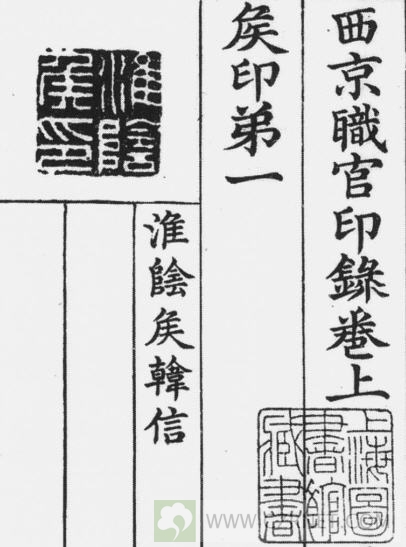 西京職官印錄卷上
上海圖書館藏書
矦印弟一
淮陰矦印
淮陰矦韓信